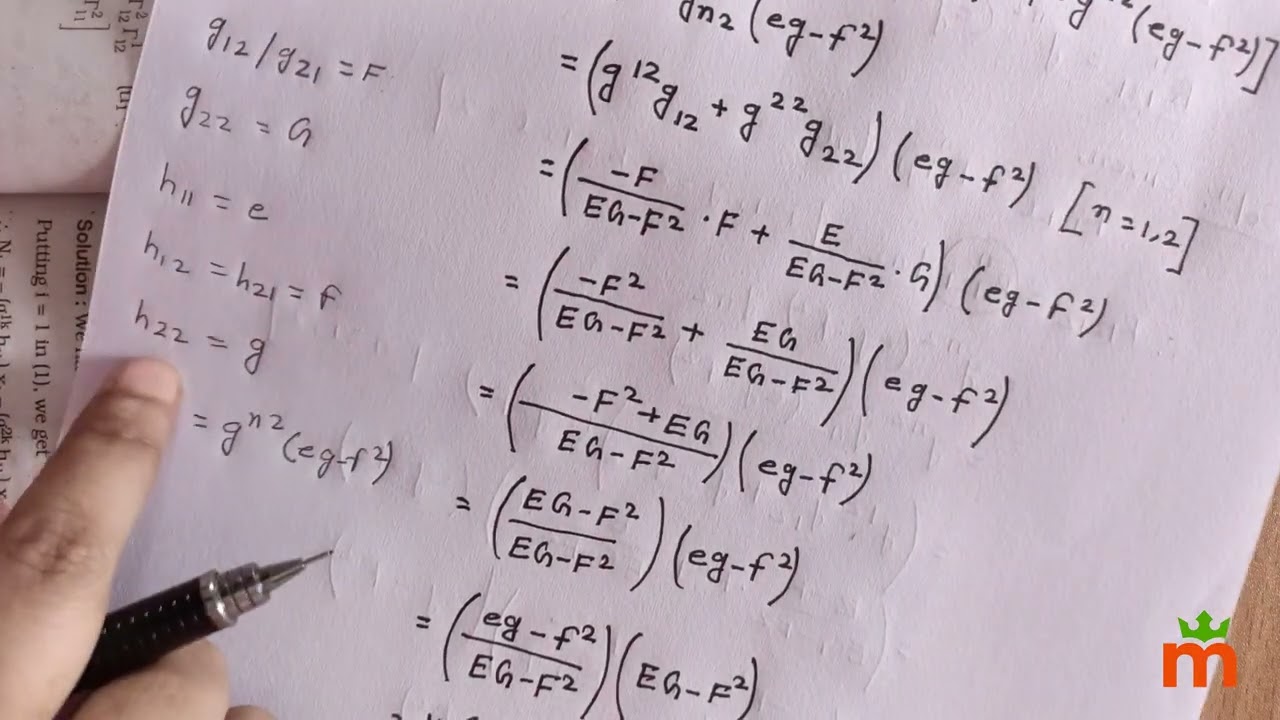 g₁₂/g₂₁ = F
g₂₂ = G
h₁₁ = e
h₁₂ = h₂₁ = f
h₂₂ = g
= gⁿ²(eg-f²)
gn₂ (eg-f²)
(eg-f²)]
= (g¹²g₁₂ + g²²g₂₂) (eg-f²) [n=1,2]
= (-F/EG-F² · F + E/EG-F² · G) (eg-f²)
= (-F²/EG-F² + EG/EG-F²) (eg-f²)
= (-F²+EG/EG-F²) (eg-f²)
= (EG-F²/EG-F²) (eg-f²)
= (eg-f²/EG-F²) (EG-F²)
Solution :
Putting i = 1 in (1), we get
m